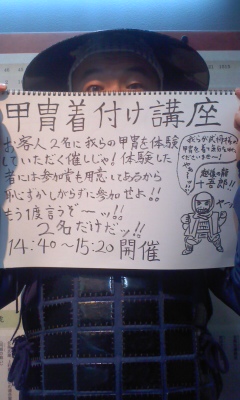 甲冑着付け講座
お客人2名に我らの甲冑を体験
していただく催しじゃ!体験した
者には参加賞も用意してあるから
恥ずかしがらずに参加せよ!!
もう1度言うぞ〜ッ!!
2名だけだッ!!
14:40〜15:20開催
甲冑を着
くださいませ〜!
越後の龍
十吾郎!!